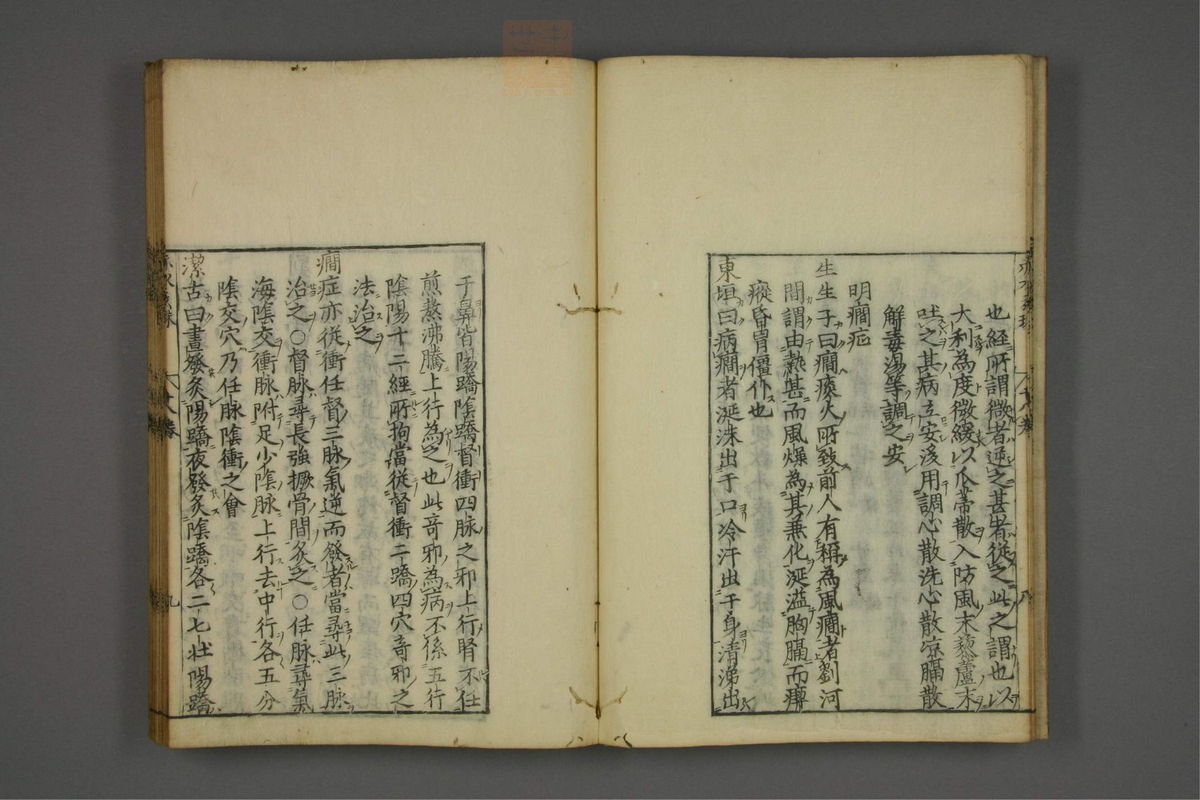 也経所謂微者逆之甚者従之此之謂也以
大利為度微緩以瓜蔕散入防風末藜蘆末
吐之其病立安後用調心散洗心散凉膈散
解毒湯等調之安
明癇症
生生子曰癇瘈火所致前人有稱為風癇者劉河
間謂由熱甚而風燥為其兼化涎溢胸膈而瘈
瘲昏冒僵仆也
東垣曰病癇者涎沫出于口冷汗出于身清涕出
于鼻皆陽蹻陰蹻督衝四脉之邪上行腎不任
煎熬沸騰上行為之也此奇邪為病不係五行
陰陽十二經所拘當従督衝二蹻四穴奇邪之
法治之
癇症亦従衝任督三脉氣逆而發者當尋此三脉
治之○督脉尋長強撅骨間灸之○任脉尋氣
海陰交衝脉附足少陰脉上行去中行各五分
陰交穴乃任脉陰衝之會
潔古曰晝發灸陽蹻夜發灸陰蹻各二七壯陽蹻